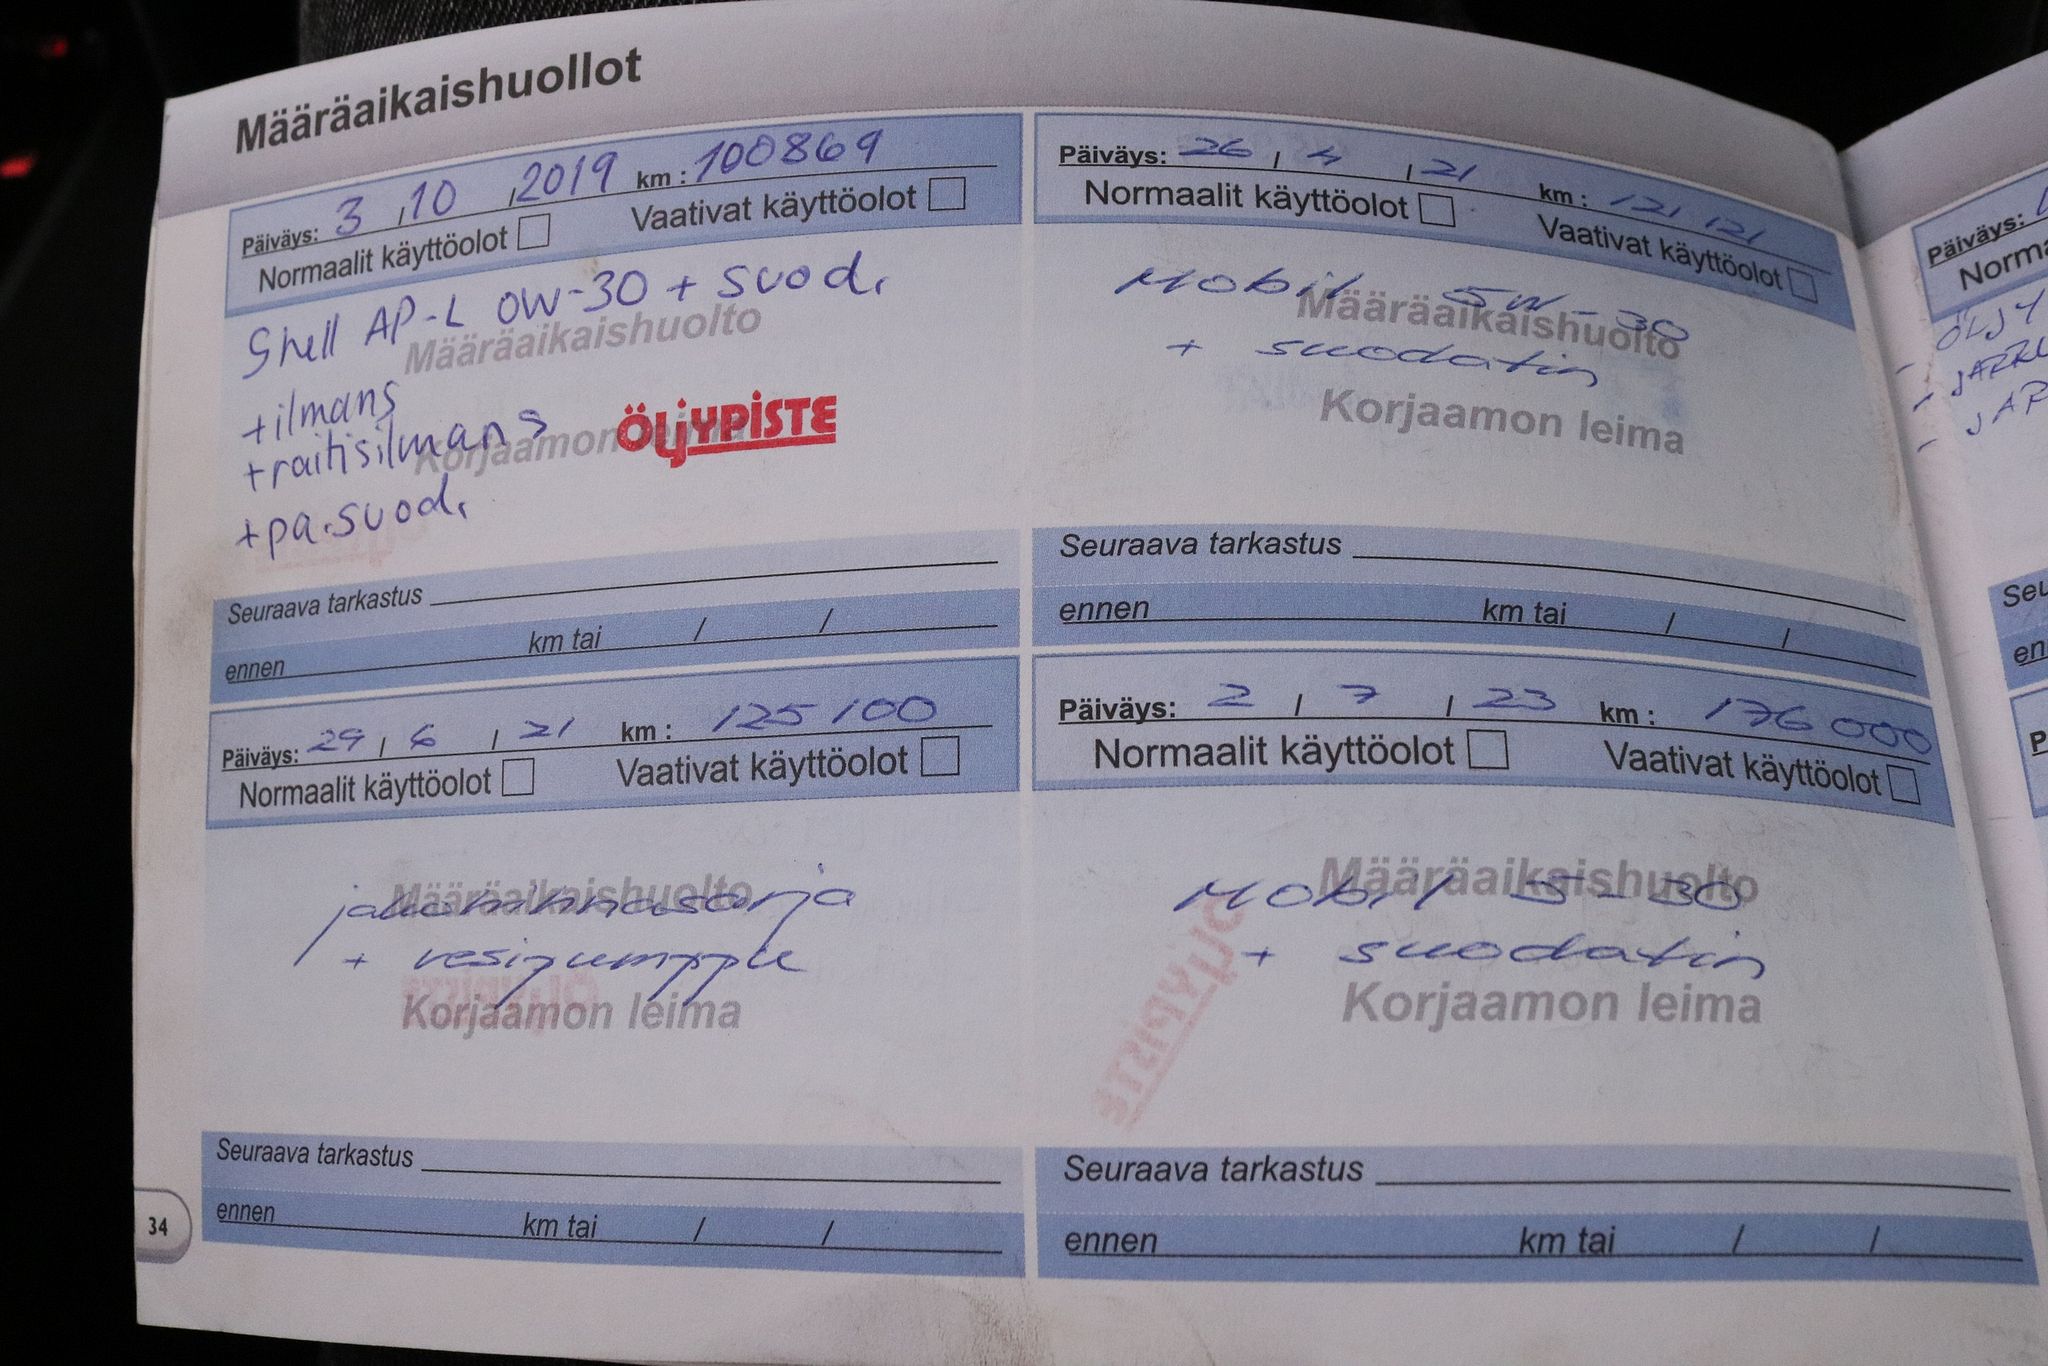 Määräaikaishuollot
Päiväys: 3 / 10 / 2019 km : 100869
Normaalit käyttöolot Vaativat käyttöolot
Shell AP-L 0W-30 + suod.
Määräaikaishuolto
+ilmans
+raitisilmans
Korjaamon leima
ÖLJYPISTE
+pa.suod.
Seuraava tarkastus
ennen km tai / /
Päiväys: 26 / 4 / 21 km : 121 121
Normaalit käyttöolot Vaativat käyttöolot
Mobil 5W-30
Määräaikaishuolto
+ suodatin
Korjaamon leima
Seuraava tarkastus
ennen km tai / /
Päiväys: 29 / 6 / 21 km : 125 100
Normaalit käyttöolot Vaativat käyttöolot
jakohihnasarja
Määräaikaishuolto
+ vesipumppu
Korjaamon leima
Seuraava tarkastus
ennen km tai / /
Päiväys: 2 / 7 / 23 km : 176 000
Normaalit käyttöolot Vaativat käyttöolot
Mobil 5-30
Määräaikaishuolto
+ suodatin
Korjaamon leima
Seuraava tarkastus
ennen km tai / /
34
Päiväys:
Norma
- ÖLJY
- JARRU
- JAR
Seu
en
P